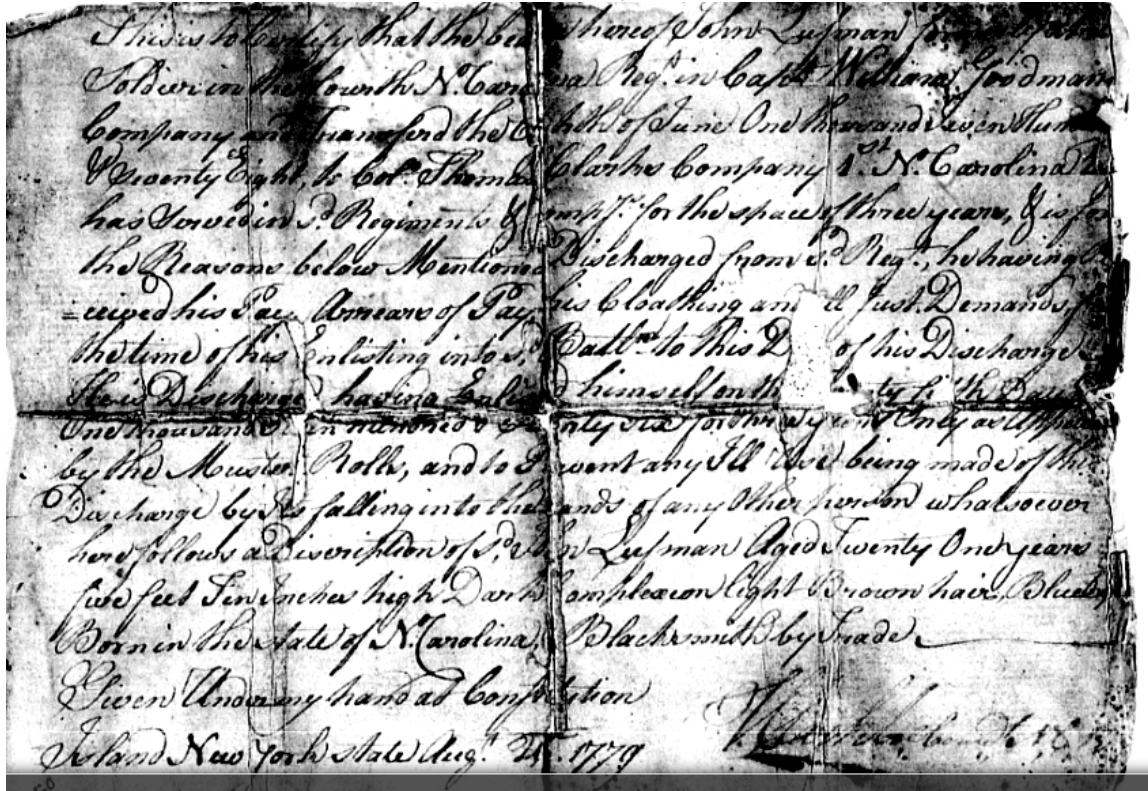 This is to Certify that the bea hereof John Lufsman formerly
Soldier in the fourth No. Caro na Regt. in Capt. William Goodmans
Company and Transferd the hth of June One thousand Seven Hun
& Seventy Eight, to Colo. Thomas Clarks Company 1st. No. Carolina
has Served in sd. Regiments & Compy. for the space of three years, & is for
the Reasons below Mentioned Discharged from sd. Regt., he having
=ceived his Pay Arrears of Pay his Cloathing and ll Just Demands,
the time of his Enlisting into sd. Battn. to this D of his Discharge
He is Discharged having Enlisted himself on th ty fifth Day
One thousand Seven Hundred & Seventy six for three years Only as Appears
by the Muster Rolls, and to Prevent any Ill Use being made of this
Discharge by Its falling into the hands of any Other person whatsoever
here follows a Discription of Sd. John Lufsman Aged Twenty One years
five feet Ten Inches high Dark Complexeon light Brown hair, Blue
Born in the state of No. Carolina, Blacksmith by Trade
Given Under my hand at Constitution
Island New York state Augt. 1779